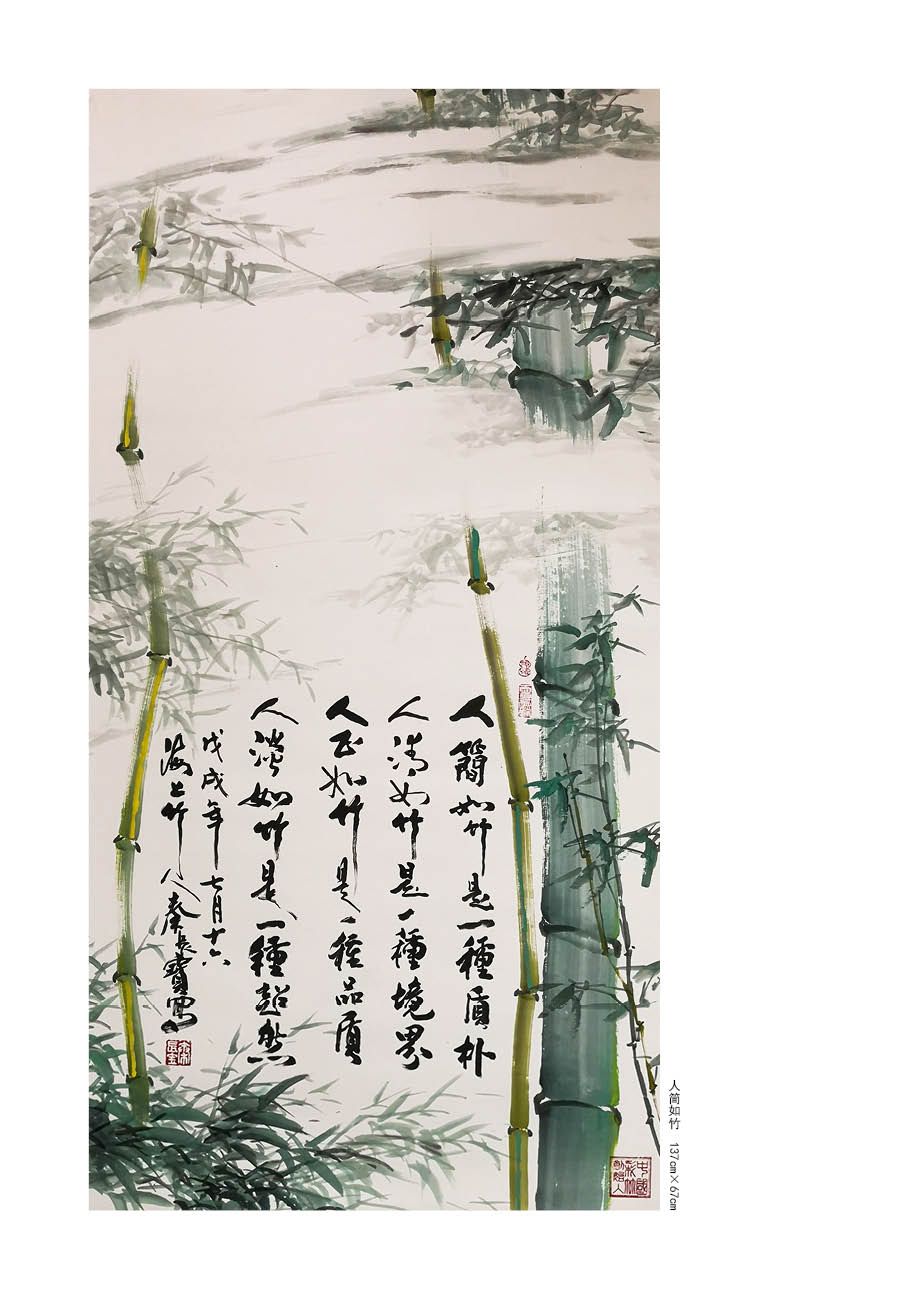 人簡如竹是一種質朴
人清如竹是一種境界
人正如竹是一種品質
人淡如竹是一種超然
戊戌年七月十六
海上竹人秦長寶寫
中國彩竹創始人
人简如竹 137cm×67cm